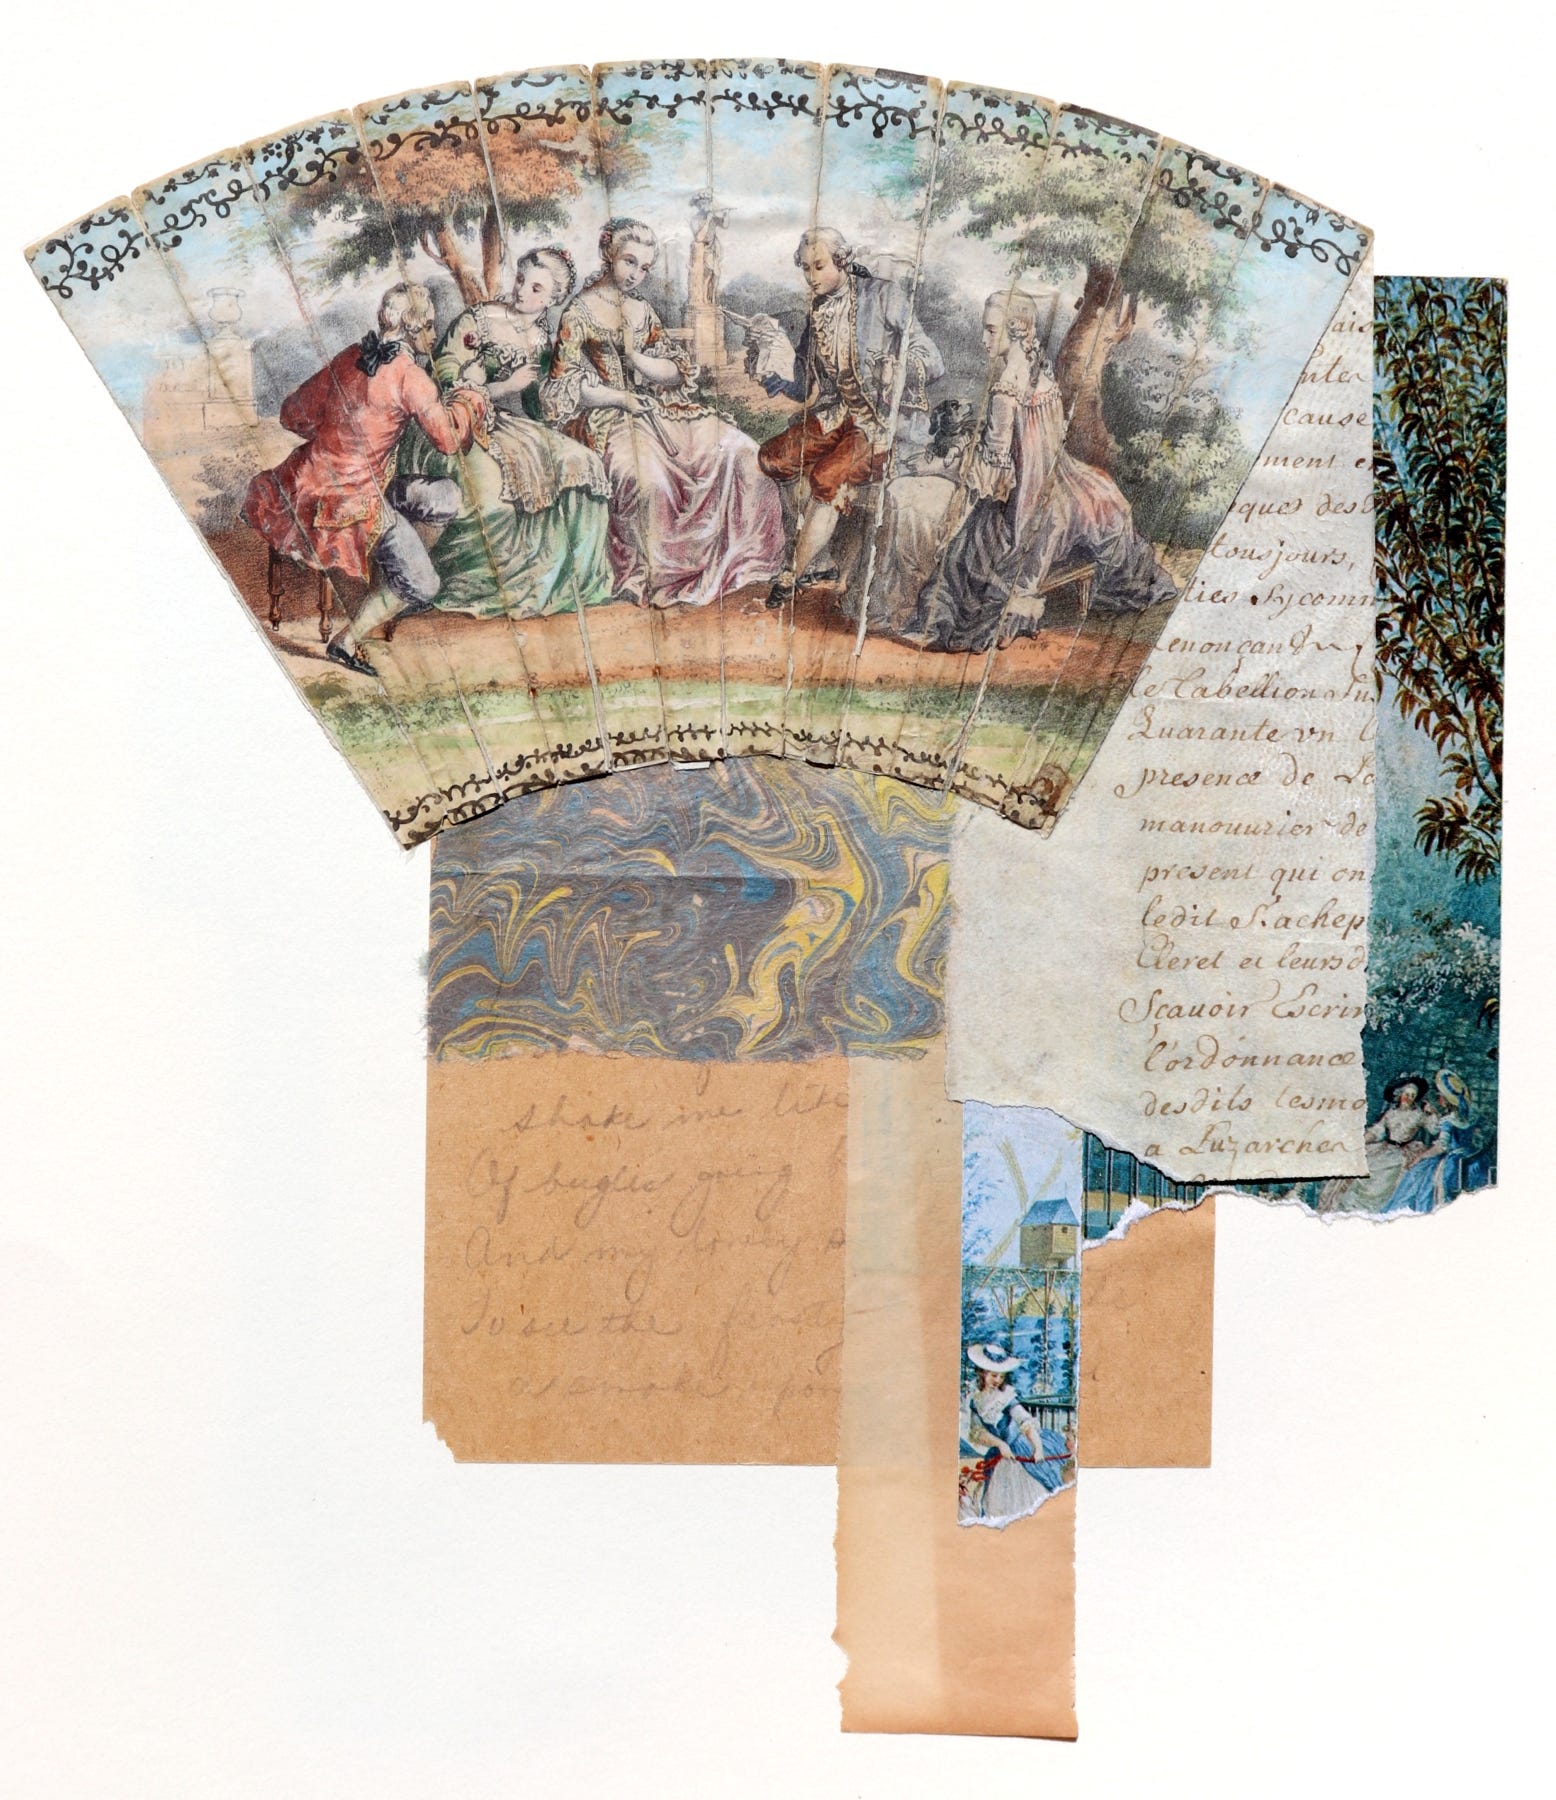 ais
ntes
cause
ment e
eques des
tousjours,
ties Sycomm
Renonçand
le tabellion
Quarante vn
presence de La
manouurier de
present qui on
ledit S. achep
Cleret et leurs d
Scauoir Escrire
l'ordonnance
desdits tesmo
a Luzarches
shake me like
Of bugles going b
And my lonely s
To see the frosty
a smoke upon